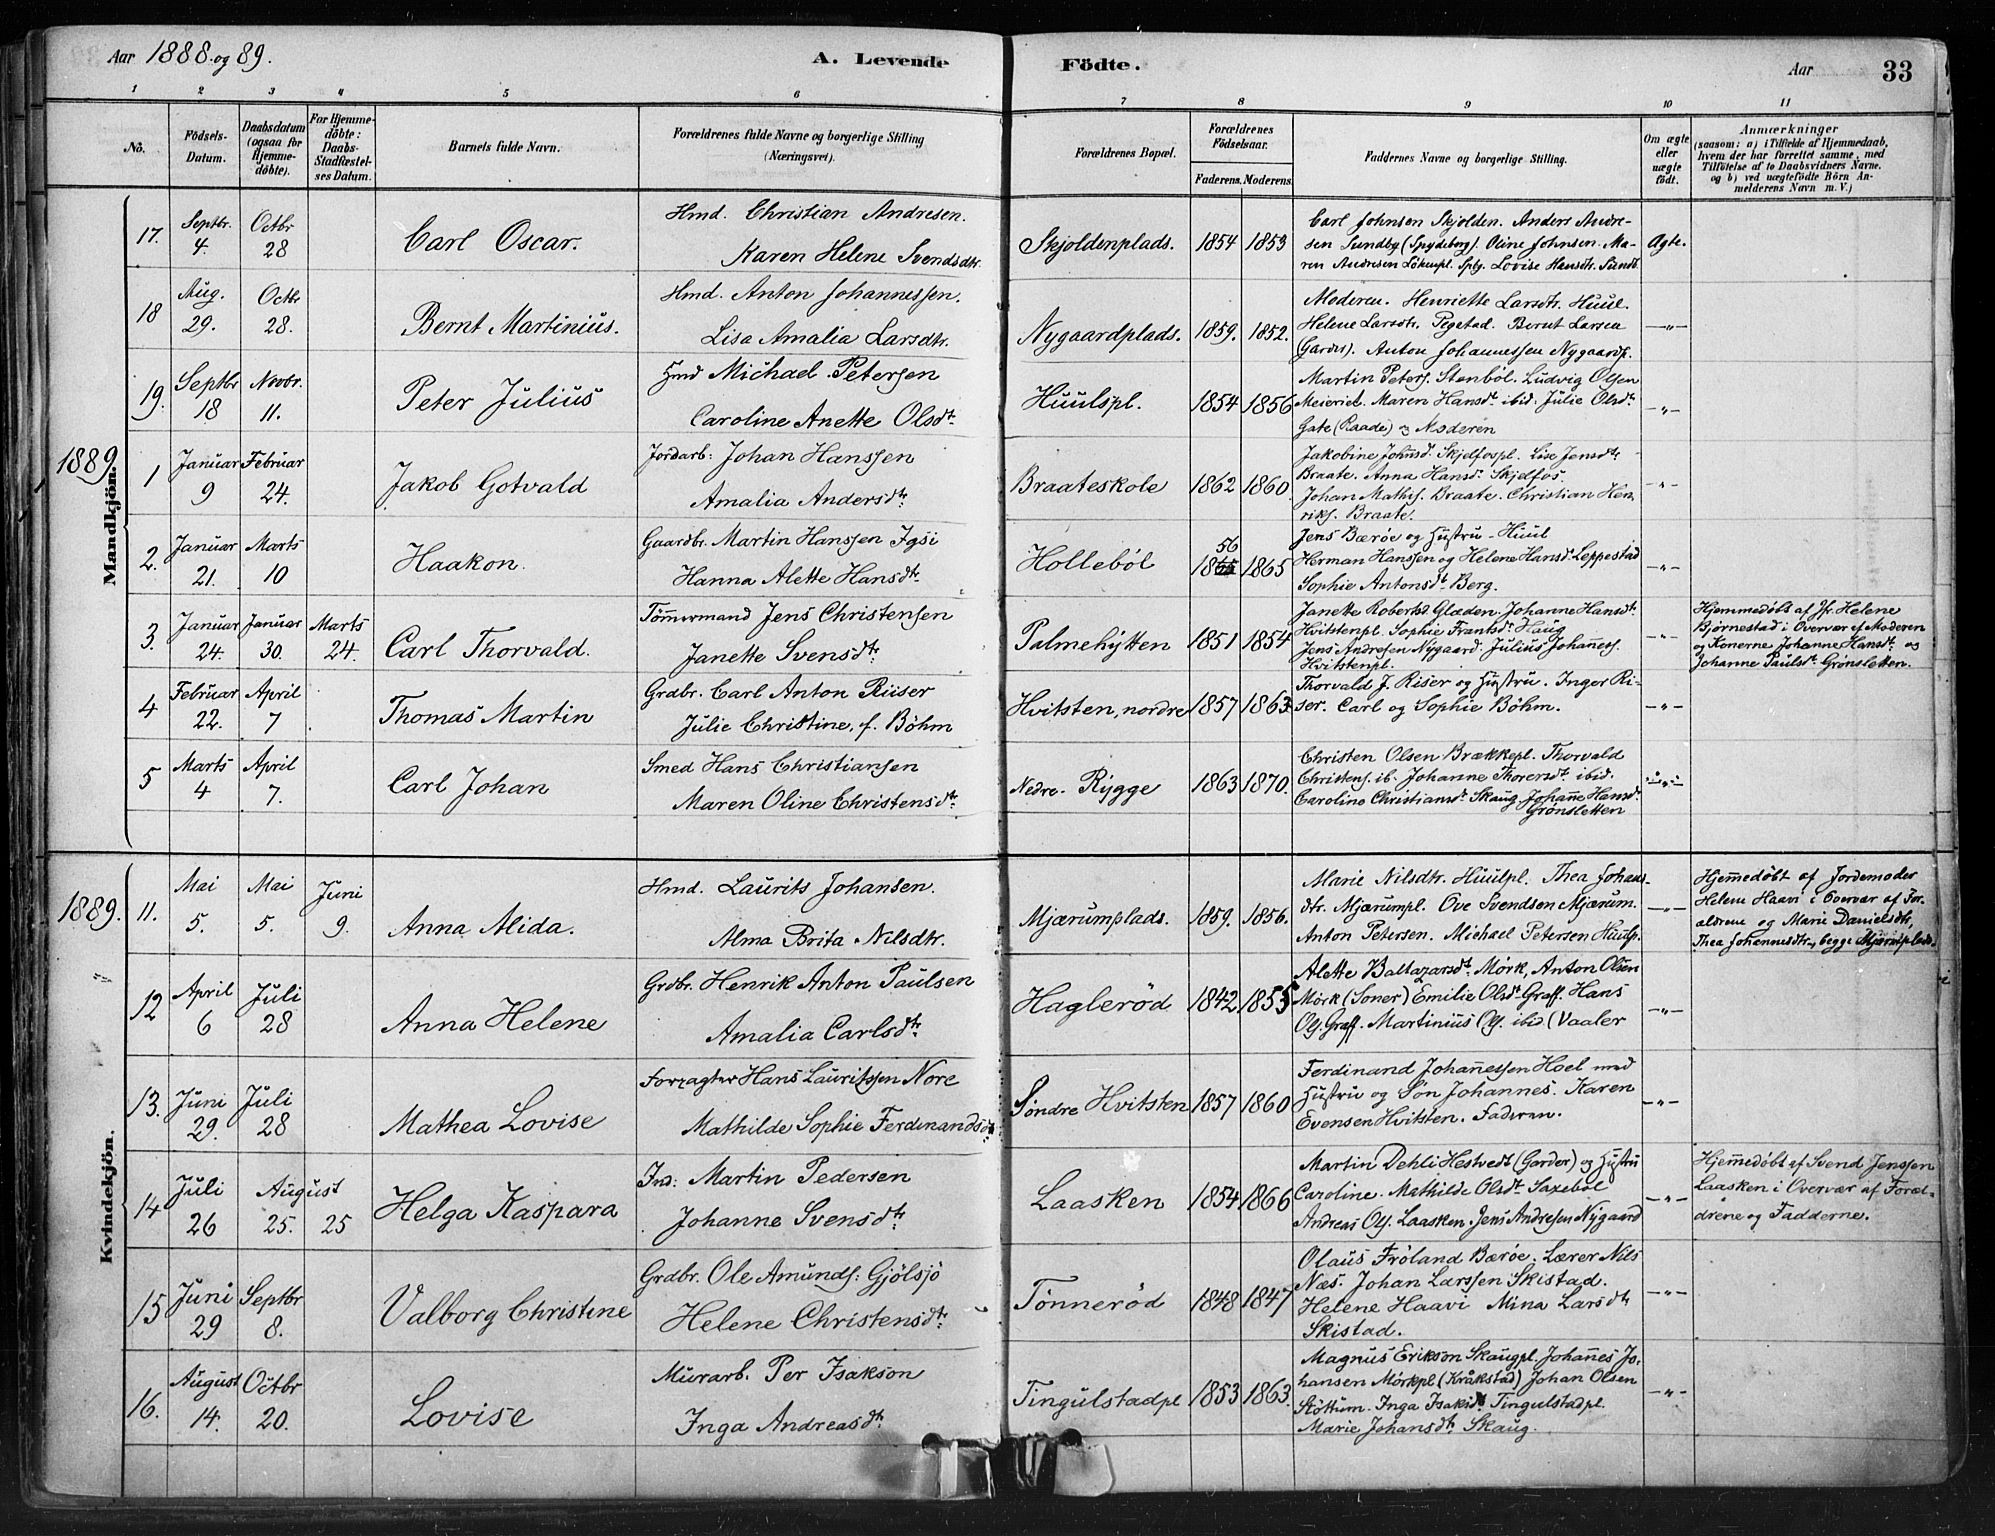 Aar 1888 og 89. A. Levende Födte. Aar 33
1 2 3 4 5 6 7 8 9 10 11
No. Födsels-Datum. Daabsdatum (ogsaa for Hjemme-döbte). For Hjemme-döbte: Daabs-Stadfæstel-ses Datum. Barnets fulde Navn. Forældrenes fulde Navne og borgerlige Stilling (Næringsvei). Forældrenes Bopæl. Forældrenes Födselsaar. Faderens. Moderens. Faddernes Navne og borgerlige Stilling. Om ægte eller uægte födt. Anmærkninger (saasom: a) i Tilfælde af Hjemmedaab, hvem der har forrettet samme, med Tilföielse af to Daabsvidners Navne. og b) ved uægtefödte Börn An-melderens Navn m. V.)
Mandkjön.
17. Septbr. 4. Octbr 28 Carl Oscar. Hmd. Christian Andresen.
Karen Helene Svendsdtr. Skjoldenplads. 1854 1853
Carl Johnsen Skjolden. Anders Andre-
sen Sundby (Spydeberg). Oline Johnsen. Ma-
ren Andresen Lökenpl. Spbg. Lovise Hansdtr. Sundb. Ægte.
18 Aug. 29. Octbr 28. Bernt Martinius. Hmd. Anton Johannessen.
Lisa Amalia Larsdtr. Nygaardplads. 1859. 1852.
Moderen. Henriette Larsdtr. Huul.
Helene Larsdtr. Pegstad. Bernt Larsen
(Garder). Anton Johannessen Nygaardp. —"—
19. Septbr 18 Novbr. 11. Peter Julius Hmd Michael Petersen
Caroline Anette Olsdt. Huulspl. 1854 1856
Martin Peters. Stenböl. Ludvig Olsen
Meieriet. Maren Hansdt ibid: Julie Olsdt.
Gate (Raade) og Moderen —"—
1889
1 Januar 9 Februar 24. Jakob Gotvald Jordarb: Johan Hanssen
Amalia Andersdt. Braateskole 1862 1860.
Jakobine Johnsd. Skjelfospl. Lise Jensdt.
Braate. Anna Hansd. Skjelfos.
Johan Mathis. Braate. Christian Hen-
riks. Braate. —"—
2. Januar 21. Marts 10 Haakon. Gaardbr. Martin Hanssen Igsi
Hanna Alette Hansdt. Holleböl 56 18 1865
Jens Bærøe og Hustru - Huul
Herman Hanssen og Helene Hansd. Leppestad
Sophie Antonsdt. Berg. —"—
3. Januar 24. Januar 30. Marts 24. Carl Thorvald. Tömmermand Jens Christensen
Janette Svensdt. Palmehytten 1851 1854
Janette Robertsd Glæden. Johanne Hansdt.
Hvitstenpl. Sophie Frantsdt. Haug
Jens Andresen Nygaard. Julius Johaness.
Hvitstenpl. —"—
Hjemmedöbt af Jfr. Helene
Bjørnestad i Overvær af Moderen
og Konerne Johanne Hansdt. og
Johanne Paulsdt. Grønsletten.
4 Februar 22. April 7 Thomas Martin Grdbr. Carl Anton Riiser
Julie Christine, f. Böhm Hvitsten, nordre 1857 1863
Thorvald J. Riser og Hustru. Inger Ri-
ser. Carl og Sophie Böhm. —"—
5 Marts 4 April 7. Carl Johan Smed Hans Christiansen
Maren Oline Christensdt. Nedre. Rygge 1863 1870.
Christen Olsen Brækkepl. Thorvald
Christens. ib. Johanne Thorersdt. ibid.
Caroline Christiansdt. Skaug Johanne Hansdt.
Grønsletten —"—
1889. Kvindekjön.
11. Mai 5. Mai 5. Juni 9. Anna Alida. Hmd. Laurits Johansen.
Alma Brita Nilsdtr. Mjærumplads. 1859. 1856.
Marie Nilsdtr. Huulpl. Thea Johans-
dtr. Mjærumpl. Ove Svendsen Mjærum.
Anton Petersen. Michael Petersen Huulp. —"—
Hjemmedöbt af Jordemoder
Helene Haavi i Overvær af For-
ældrene og Marie Danielsdtr,
Thea Johannesdtr., begge Mjærumplads.
12 April 6 Juli 28 Anna Helene Grdbr. Henrik Anton Paulsen
Amalia Carlsdt. Haglerød 1842 1855
Alette Baltazarsdt. Mørk, Anton Olsen
Mörk (Soner) Emilie Olsdt. Graff. Hans
Ols. Graff. Martinius Ols. ibid. (Vaaler —"—
13. Juni 29. Juli 28 Mathea Lovise Forpagter Hans Lauritssen Nore
Mathilde Sophie Ferdinandsdt. Søndre Hvitsten 1857 1860
Ferdinand Johannessen Hoel med
Hustru og Søn Johannes. Karen
Evensen Hvitsten. Faderen. —"—
14 Juli 26 August 25. 25 Helga Kaspara Ind: Martin Pedersen
Johanne Svensdt. Laasken 1854 1866
Martin Dehli Hestvedt (Garder) og Hustru
Caroline. Mathilde Olsdt. Saxeböl
Andreas Ols. Laasken. Jens Andresen Nygaard —"—
Hjemmedöbt af Svend Jenssen
Laasken i Overvær af Foræl-
drene og Fadderne.
15 Juni 29 Septbr 8. Valborg Christine Grdbr. Ole Amunds. Gjölsjö
Helene Christensdt. Tønnerød 1848 1847
Olaus Fröland Bærøe. Lærer Nils
Næs. Johan Larssen Skistad.
Helene Haavi Mina Larsdt.
Skistad. —"—
16. August 14. Octbr 20. Lovise Murarb. Per Isakson
Inga Andreasdt. Tingulstadpl 1853 1863.
Magnus Erikson Skaugpl. Johannes Jo-
hansen Mörkpl (Kråkstad) Johan Olsen
Støttum. Inga Isaksdt. Tingulstadpl.
Marie Johansdt. Skaug. —"—